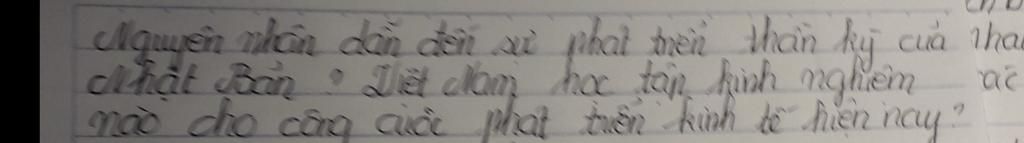 Nguyên nhân dẫn đến sự phát triển thần kỳ của
Nhật Bản ? Việt Nam học tập kinh nghiệm
nào cho công cuộc phát triển kinh tế hiện nay?